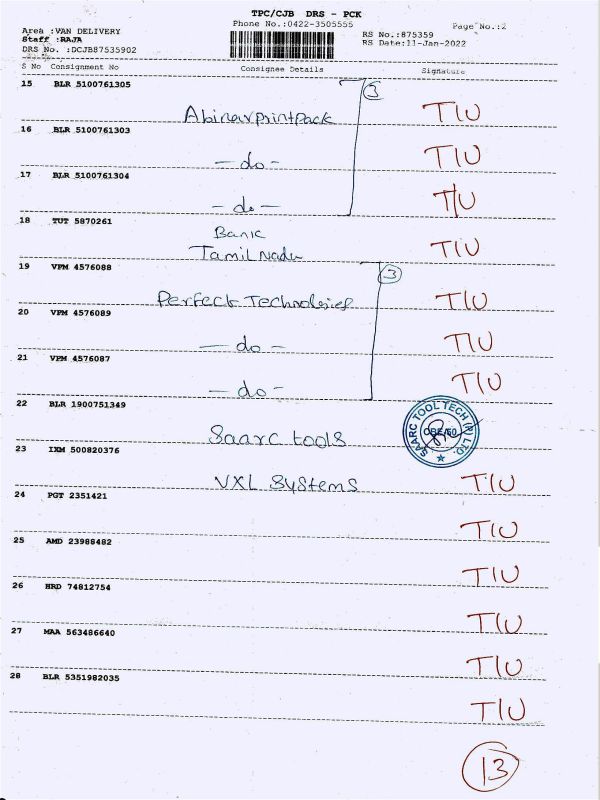 TPC/CJB DRS - PCK
Phone No.:0422-3505555
Page No.:2
Area :VAN DELIVERY
Staff :RAJA
DRS No. :DCJB87535902
RS No.:875359
RS Date:11-Jan-2022
S No Consignment No Consignee Details Signature
15 BLR 5100761305
3
Abinavprintpack TIU
16 BLR 5100761303
- do - TIU
17 BLR 5100761304
- do - TIU
18 TUT 5870261
Bank
Tamil Nadu TIU
19 VPM 4576088
3
Perfect Technologies TIU
20 VPM 4576089
- do - TIU
21 VPM 4576087
- do - TIU
22 BLR 1900751349
Saarc tools
SAARC TOOL TECH (P) LTD.
23 IXM 500820376
VXL Systems TIU
24 PGT 2351421
TIU
25 AMD 23988482
TIU
26 HRD 74812754
TIU
27 MAA 563486640
TIU
28 BLR 5351982035
TIU
13